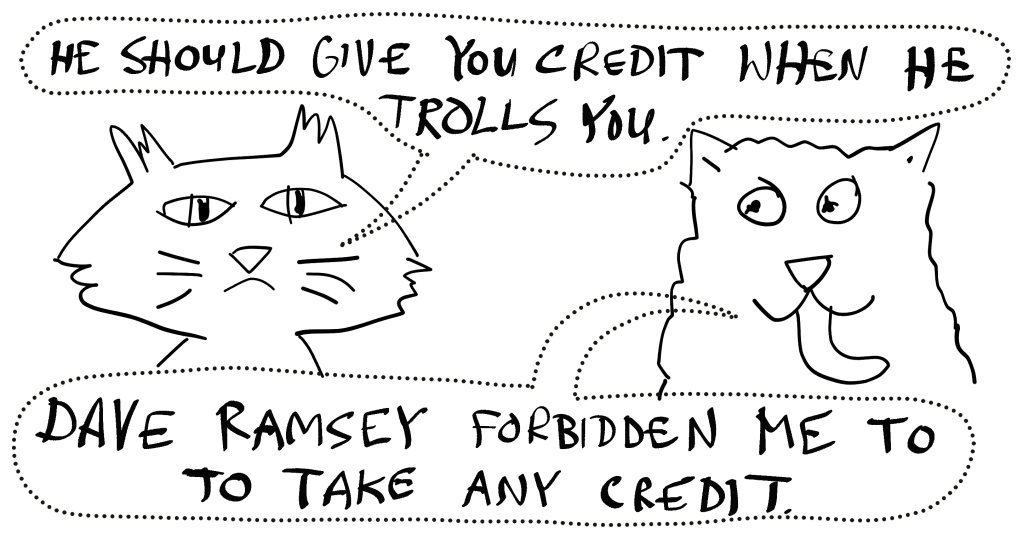 HE SHOULD GIVE YOU CREDIT WHEN HE
TROLLS YOU.
DAVE RAMSEY FORBIDDEN ME TO
TO TAKE ANY CREDIT.